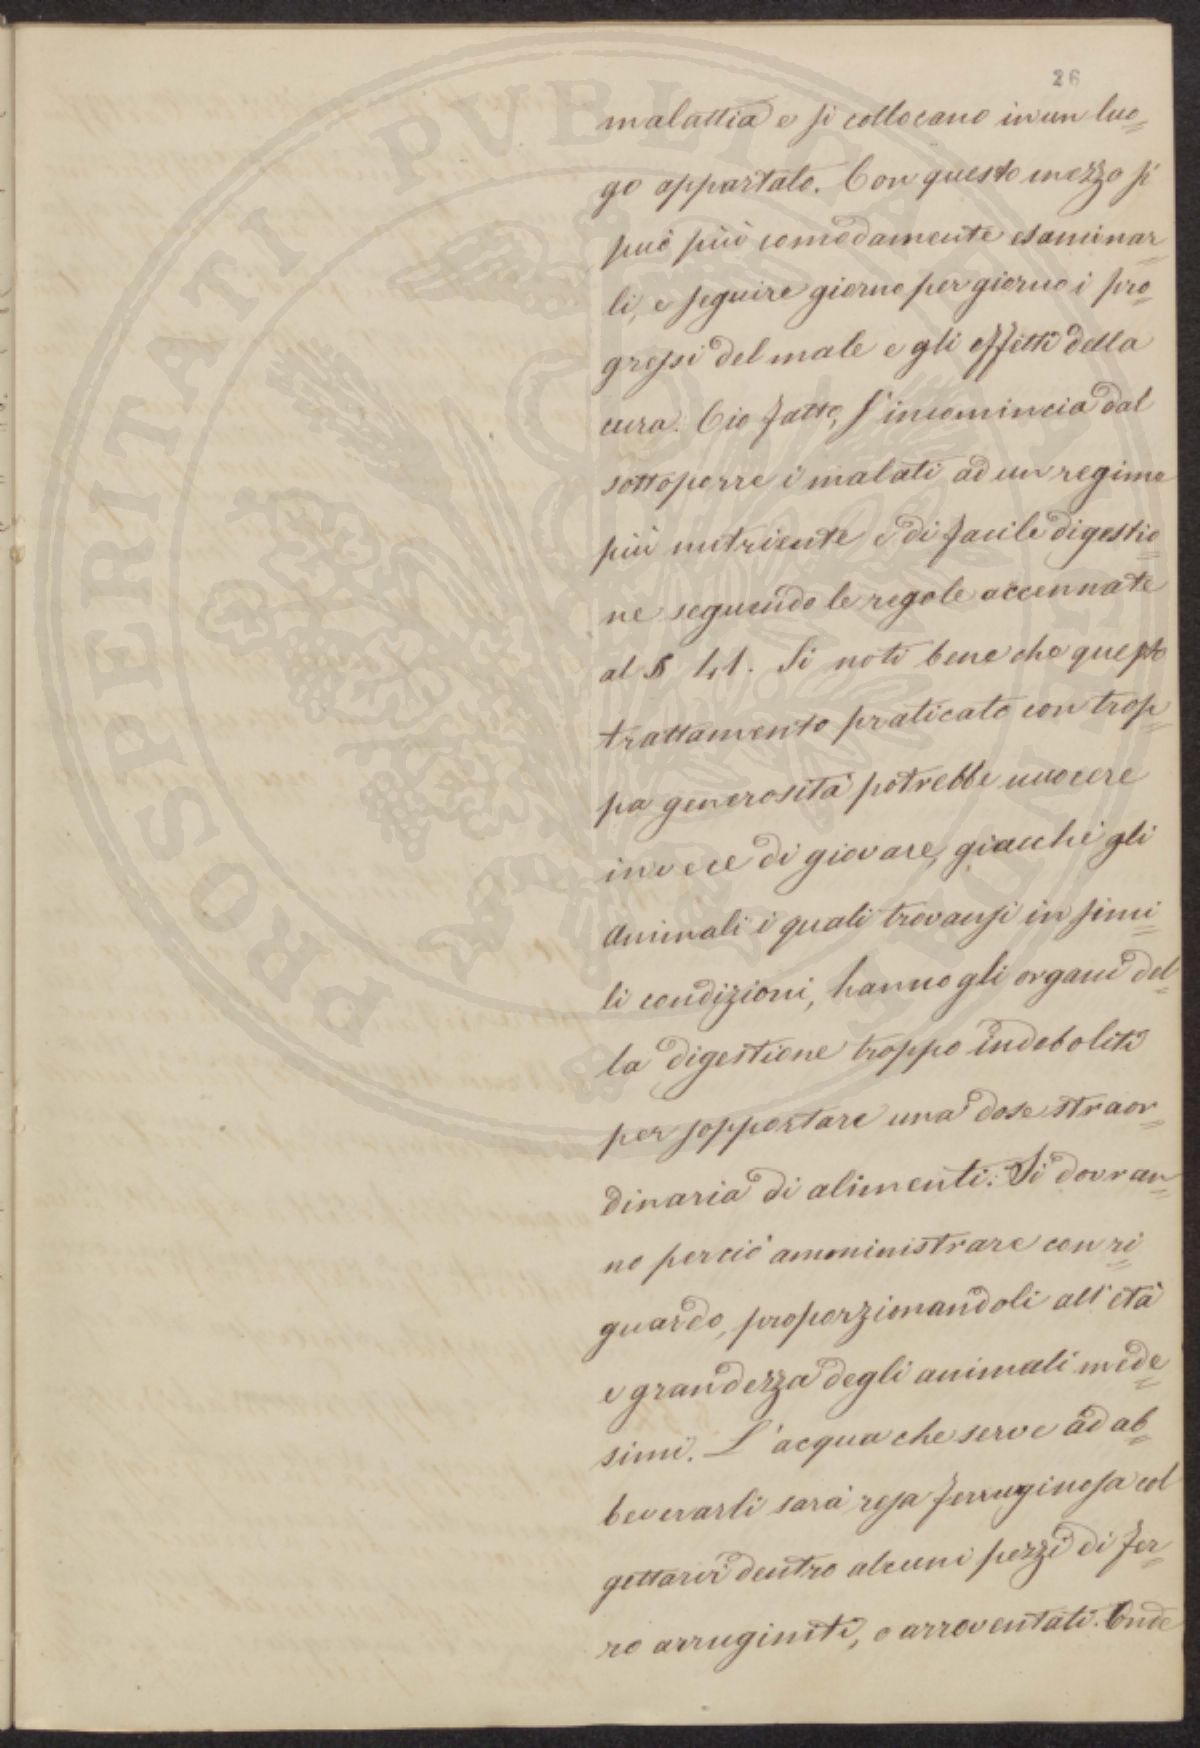 26
malattia e si collocano in un luo=
go appartato. Con questo mezzo si
può più comodamente esaminar=
li, e seguire giorno per giorno i pro=
gressi del male e gli effetti della
cura. Ciò fatto, s'incomincia dal
sottoporre i malati ad un regime
più nutriente e di facile digestio=
ne seguendo le regole accennate
al § 41. Si noti bene che questo
trattamento praticato con trop=
pa generosità potrebbe nuocere
invece di giovare, giacchè gli
animali i quali trovansi in simi=
li condizioni, hanno gli organi del=
la digestione troppo indeboliti
per sopportare una dose straor=
dinaria di alimenti. Si dovran=
no perciò amministrare con ri=
guardo, proporzionandoli all'età
e grandezza degli animali mede=
simi. L'acqua che serve ad ab=
beverarli sarà resa ferruginosa col
gettarvi dentro alcuni pezzi di fer=
ro arruginiti, o arroventati. Onde
PROSPERITATI PVBLICAE